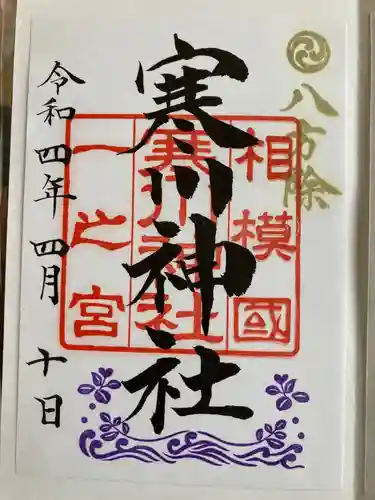 八方除
相模國
寒川神社
一之宮
寒川神社
令和四年 四月 十日